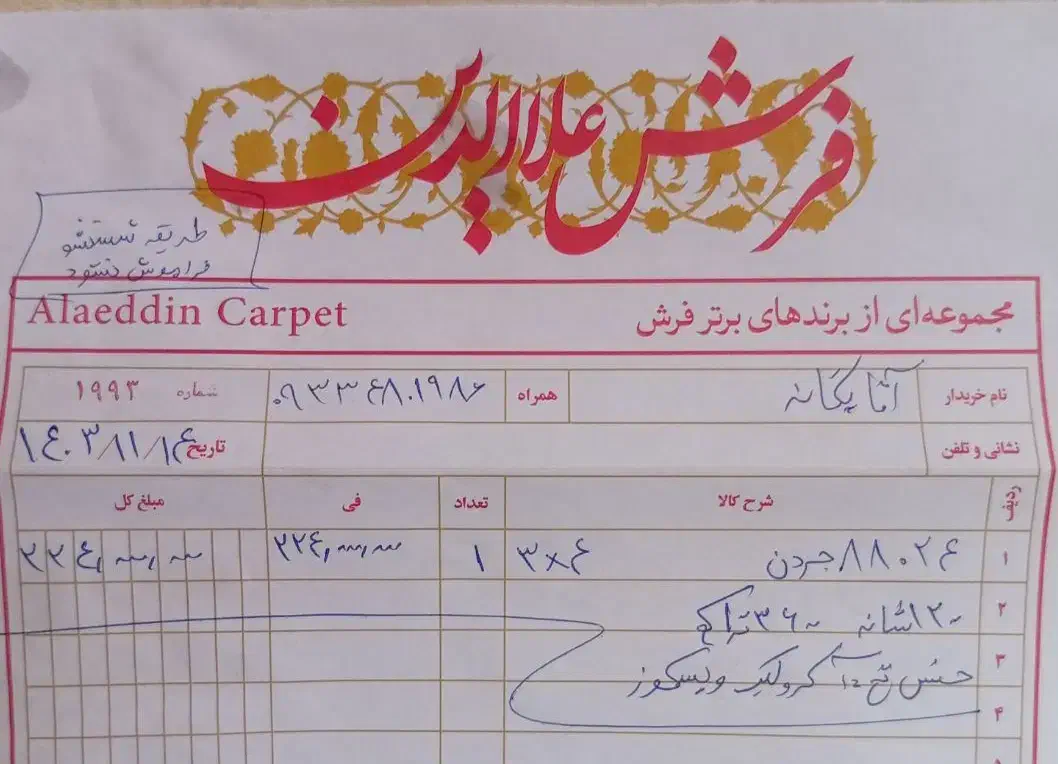 فرش علاالدین
طریقه شستشو
فراموش نشود
Alaeddin Carpet
مجموعه‌ای از برندهای برتر فرش
نام خریدار آقا یگانه همراه ۰۹۳۳۶۸۰۱۹۸۶ شماره ۱۹۹۳
نشانی و تلفن تاریخ ۱۴۰۳/۱۱/۱۴
ردیف شرح کالا تعداد فی مبلغ کل
۱ جردن ۳×۴ ۱
۲ ۱۲۰۰ شانه ۳۶۰۰ تراکم
۳ جنس نخ آکرولیک ویسکوز
۴